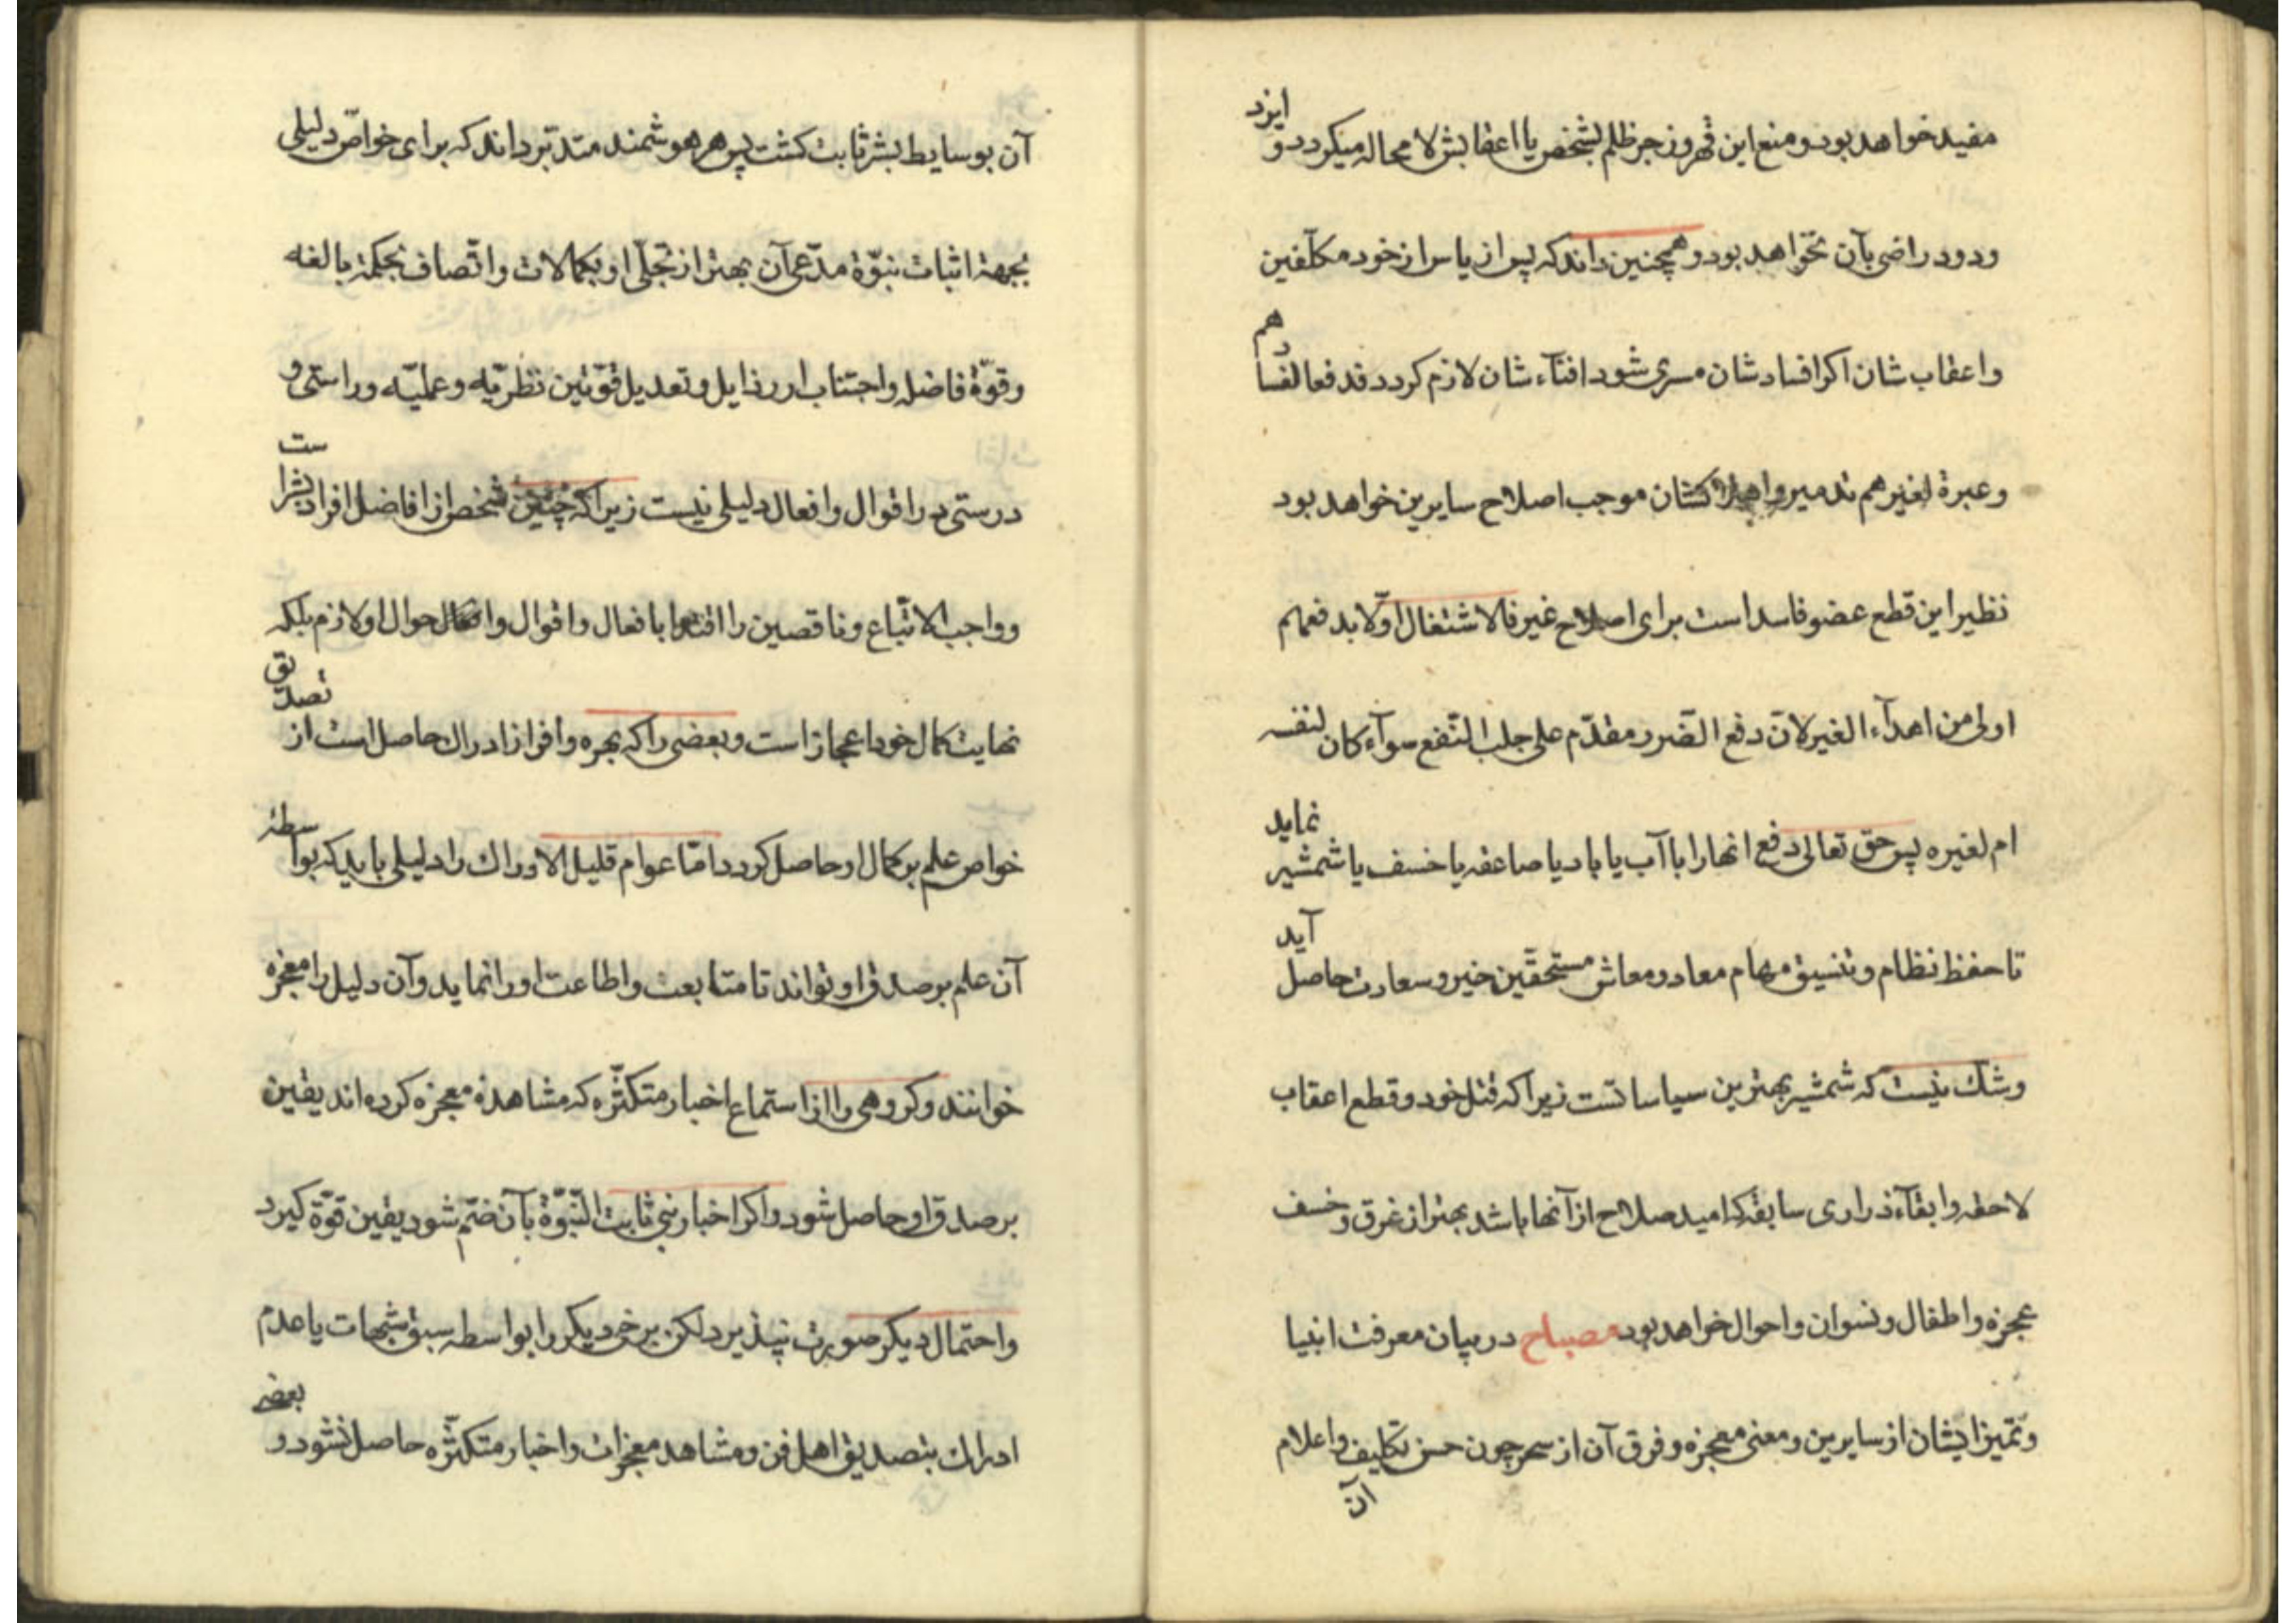 مفید خواهد بود و منع این قهر و زجر ظلم بشخص یا اعقابش لا محاله میکردد و ایزد
ودود راضی بآن نخواهد بود و همچنین داند که پس از یاس از خود مکلّفین
و اعقاب شان اکر افساد شان مسری شود افنآء شان لازم کردد فدفعا لفسادهم
و عبرة لغیرهم تدمیر و اهلاکشان موجب اصلاح سایرین خواهد بود
نظیر این قطع عضو فاسد است برای اصلاح غیر فالاشتغال اوّلا بدفعهم
اولی من اهدآء الغیر لانّ دفع الضّرر مقدّم علی جلب النّفع سوآء کان لنفسه
ام لغیره پس حق تعالی دفع انها را با آب یا باد یا صاعقه یا خسف یا شمشیر نماید
تا حفظ نظام و تنسیق مهام معاد و معاش مستحقّین خیر و سعادت حاصل آید
و شک نیست که شمشیر بهترین سیاساتست زیرا که قتل خود و قطع اعقاب
لاحقه و ابقآء ذراری سابقه که امید صلاح از آنها باشد بهتر از غرق و خسف
عجزه و اطفال و نسوان و احوال خواهد بود مصباح در بیان معرفت انبیا
و تمیز ایشان از سایرین و معنی معجزه و فرق آن از سحر چون حسن تکلیف و اعلام
آن
آن بوسایط بشر ثابت کشت پس هر هوشمند متدبّر داند که برای خواصّ دلیلی
بجهة اثبات نبوّة مدّعی آن بهتر از تجلّی او بکمالات و اتّصاف بحکمة بالغه
و قوّة فاضله و اجتناب از رذایل و تعدیل قوّتین نظریّه و عملیّه و راستی و
درستی در اقوال و افعال دلیلی نیست زیرا که چنین شخص از افاضل افراد بشر است
و واجب الاتّباع و ناقصین را اقتدا بافعال و اقوال و احوال او لازم بلکه
نهایت کمال خود اعجاز است و بعضی را که بهره وافر از ادراک حاصل است از تصدیق
خواص علم بر کمال او حاصل کردد امّا عوام قلیل الادراک را دلیلی باید که بواسطهٔ
آن علم بر صدق او تواند تا متابعت و اطاعت او را نماید و آن دلیل را معجزه
خوانند و کروهی را از استماع اخبار متکثّره که مشاهدهٔ معجزه کرده اند یقین
بر صدق او حاصل شود و اکر اخبار نبی ثابت النّبوّة بآن ضمّ شود یقین قوّة کیرد
و احتمال دیکر صورت نپذیرد لکن برخی دیکر را بواسطه سبق شبهات یا عدم
ادراک بتصدیق اهل فن و مشاهد معجزات و اخبار متکثّره حاصل نشود و بعضی